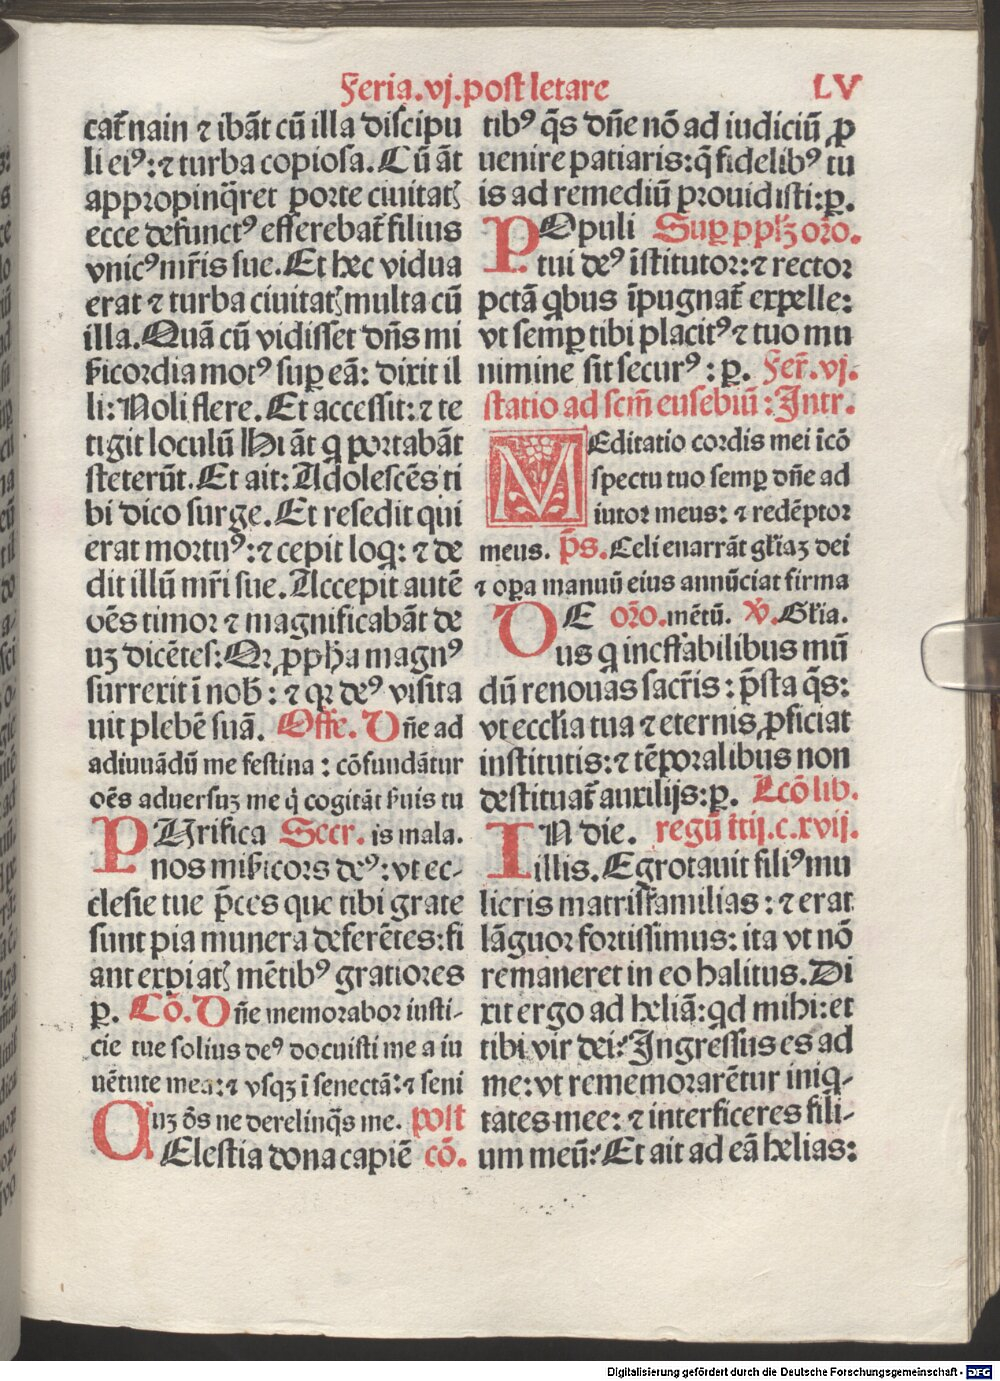 Feria.vj.post letare LV
cat̄ nain ⁊ ibāt cū illa discipu
li eiꝰ:⁊ turba copiosa.Cū āt
appropinq̄ret porte ciuitatꝭ
ecce defunctꝰ efferebat̄ filius
vnicꝰ mr̄is sue.Et hec vidua
erat ⁊ turba ciuitatꝭ multa cū
illa.Quā cū vidisset dn̄s mi
ẜicordia motꝰ suꝑ eā: dixit il
li:Noli flere.Et accessit:⁊ te
tigit loculū Hi āt q̇ portabāt
steterūt.Et ait:Adolescēs ti
bi dico surge.Et resedit qui
erat mortuꝰ:⁊ cepit loq̇: ⁊ de
dit illū mr̄i sue.Accepit autē
oēs timor ⁊ magnificabāt de
uꝫ dicētes:Qꝛ ꝓpħa magnꝰ
surrexit ī nob̄: ⁊ qꝛ deꝰ visita
uit plebē suā. Offe. Dn̄e ad
adiuuādū me festina : cōfundātur
oēs aduersuꝫ me q̇ cogitāt ẜuis tu
PUrifica Secr. is mala.
nos miẜicors deꝰ:vt ec-
clesie tue p̄ces que tibi grate
sunt pia munera deferētes:fi
ant expiatꝭ mētibꝰ gratiores
ꝑ. Cō. Dn̄e memorabor iusti-
cie tue solius deꝰ docuisti me a iu
uētute mea:⁊ vsqꝫ ī senectā:⁊ seni
uꝫ ōs ne derelinq̄s me. post
CElestia dona capiē cō.
tibꝰ q̄s dn̄e nō ad iudiciū ꝓ
uenire patiaris:q̄ fidelibꝰ tu
is ad remediū prouidisti:ꝑ.
POpuli Suꝑ pplꝫ oro.
tui deꝰ īstitutor:⁊ rector
pctā qbus īpugnat̄ expelle:
vt semꝑ tibi placitꝰ ⁊ tuo mu
nimine sit securꝰ : ꝑ. Fer̄.vj.
statio ad scm̄ eusebiū : Intr.
MEditatio cordis mei icō
spectu tuo semꝑ dn̄e ad
iutor meus: ⁊ redēptor
meus. p̄s. Celi enarrāt gl̄iaꝫ dei
⁊ oꝑa manuū eius annūciat firma
DE oro. mētū. V̄. Gl̄ia.
us q̇ ineffabilibus mū
dū renouas sacr̄is : p̄sta q̄s:
vt eccl̄ia tua ⁊ eternis ꝓficiat
institutis:⁊ tēporalibus non
destituat̄ auxilijs:ꝑ. Lcō lib.
IN die. regū iiij.c.xvij.
illis.Egrotauit filiꝰ mu
lieris matrisfamilias : ⁊ erat
lāguor fortissimus: ita vt nō
remaneret in eo halitus.Di
xit ergo ad heliā:qd mihi:et
tibi vir dei:Ingressus es ad
me:vt rememorarētur iniq-
tates mee: ⁊ interficeres fili-
um meū:Et ait ad eā helias:
Digitalisierung gefördert durch die Deutsche Forschungsgemeinschaft - DFG